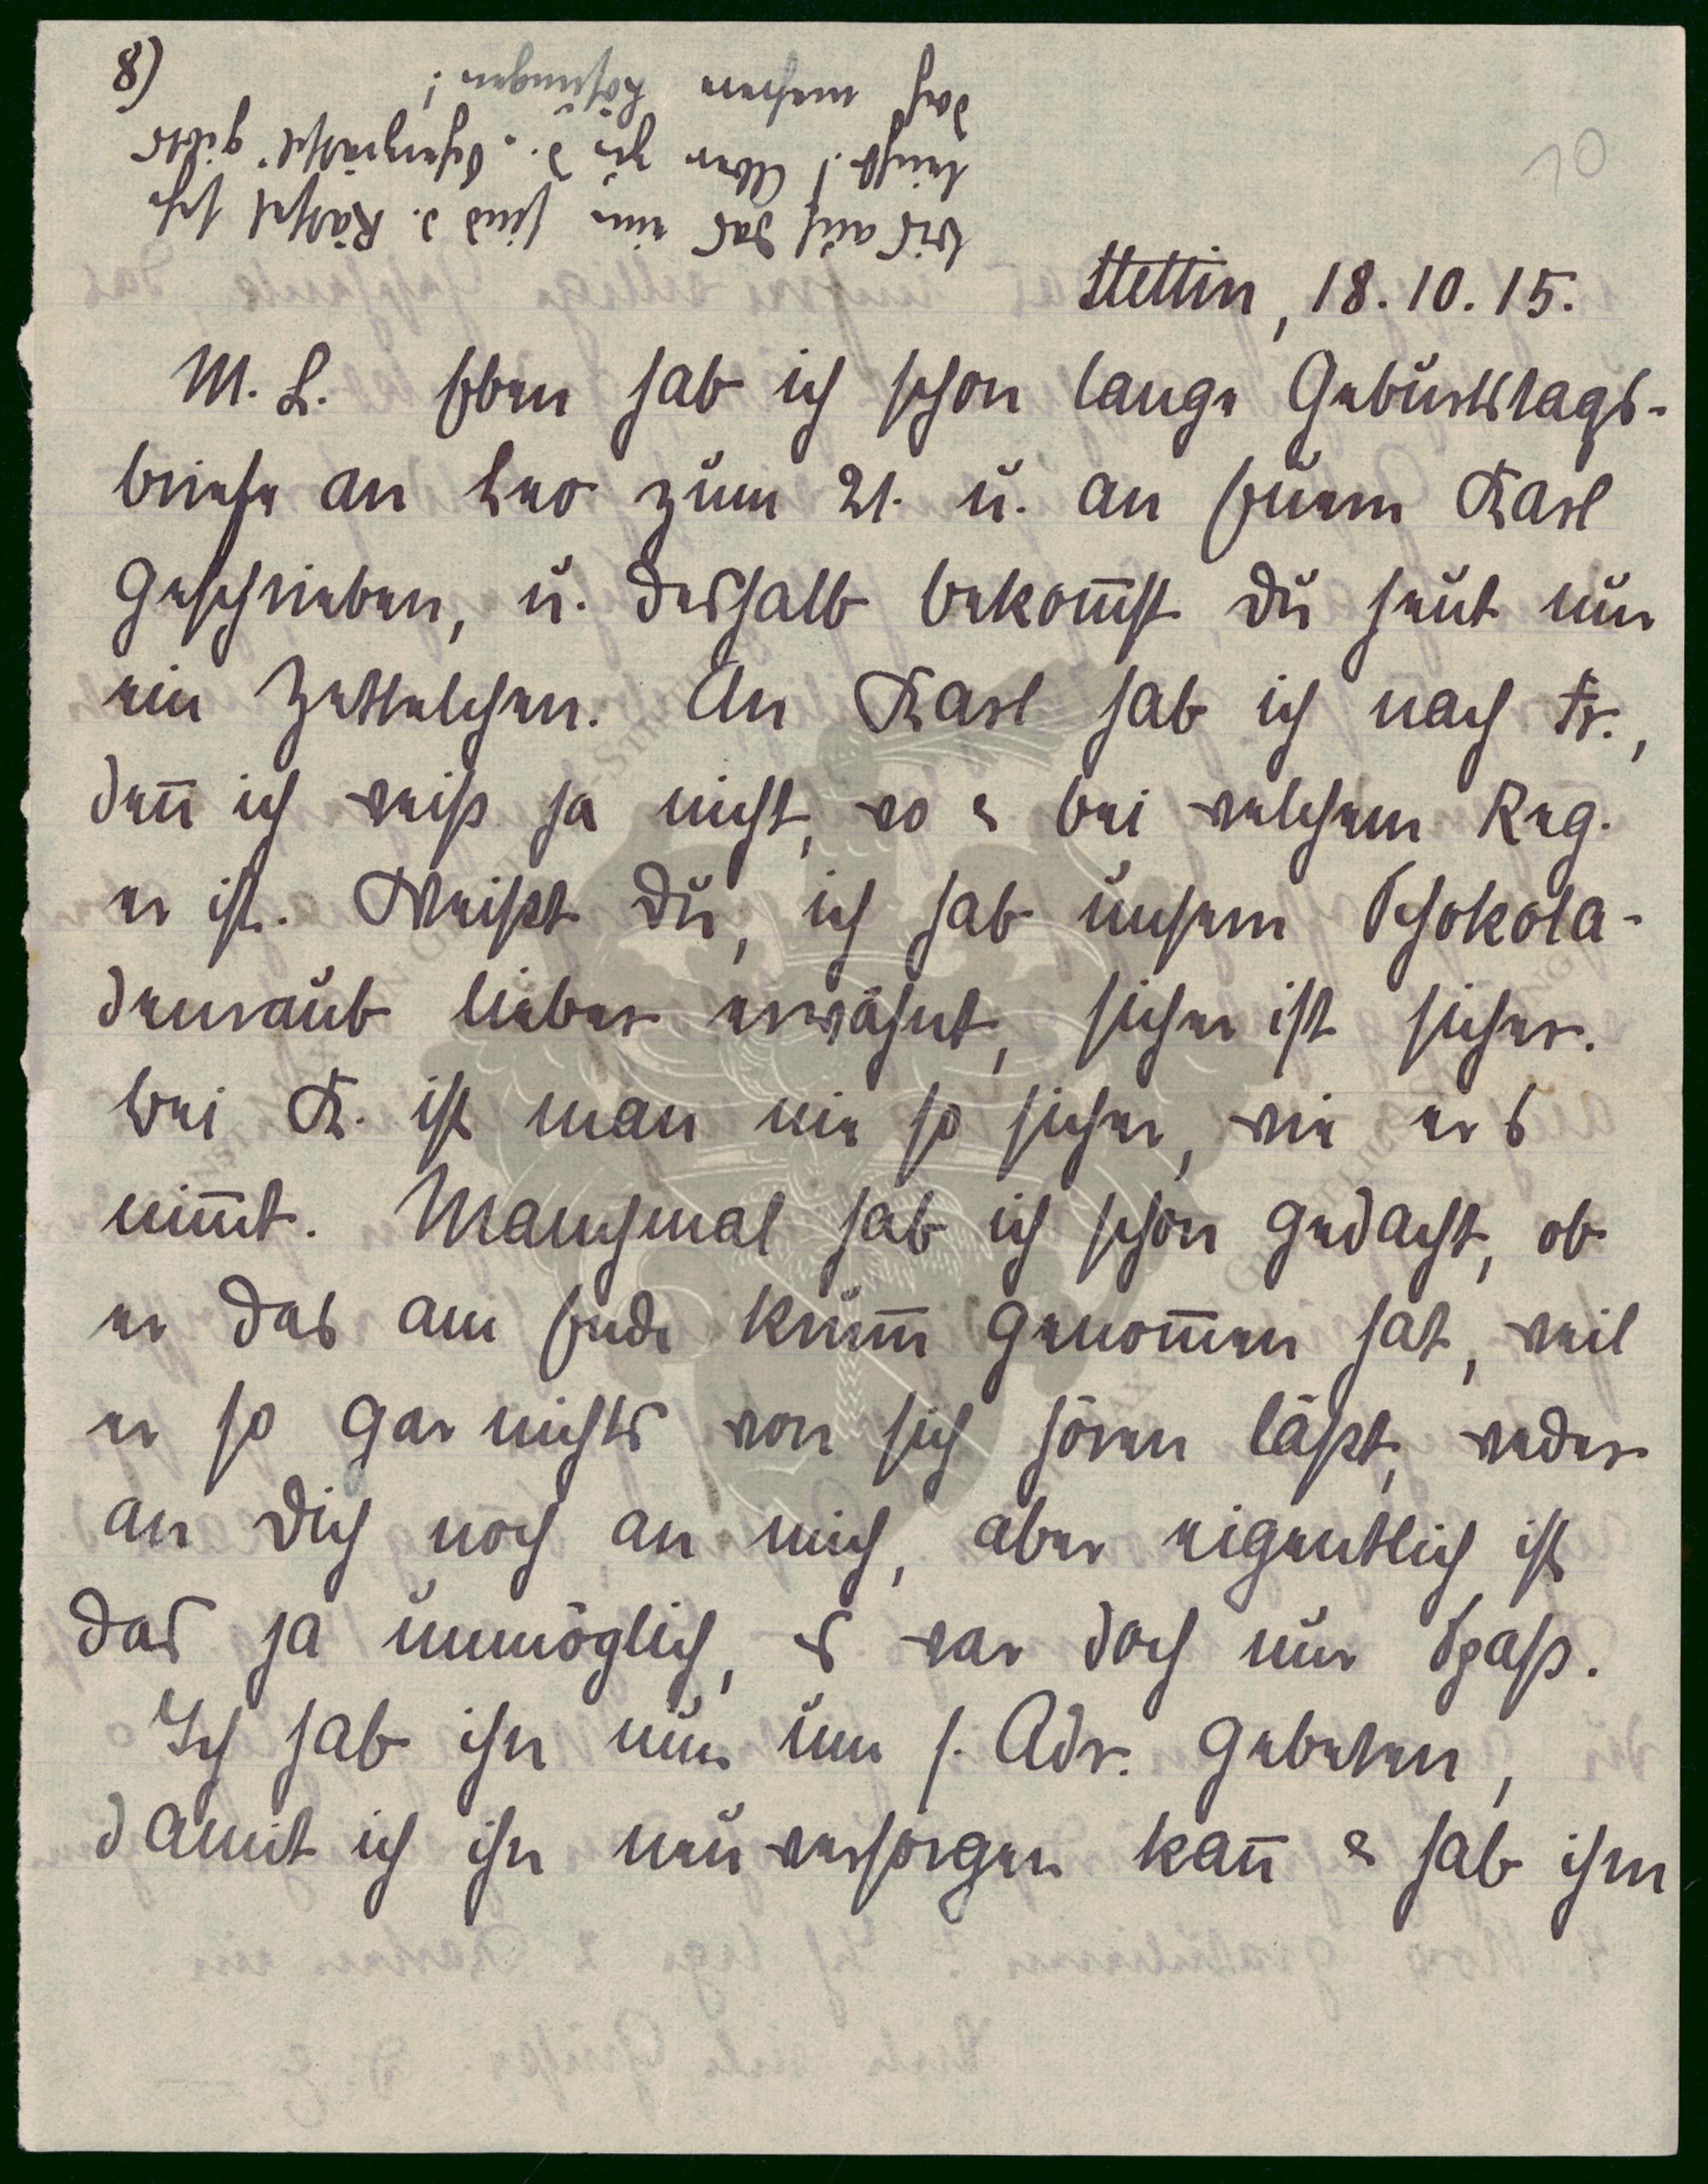 8)
bis auf das nur sind d. Rätsel sehr
leicht! Aber für d. „Scherzrätsel" gibts
doch mehrere Lösungen!
10
Stettin, 18.10.15.
M. L. Eben hab ich schon lange Geburtstags-
briefe an Leo zum 21. u. an Euern Karl
geschrieben, u. deshalb bekom̅st Du heut nur
ein Zettelchen. An Karl hab ich nach Fr.,
den̅ ich weiß ja nicht, wo & bei welchem Reg.
er ist. Weißt Du, ich hab unsern Schokola-
denraub lieber erwähnt, sicher ist sicher.
bei K. ist man nie so sicher, wie ers
nim̅t. Manchmal hab ich schon gedacht, ob
er das am Ende krum̅ genom̅en hat, weil
er so gar nichts von sich hören läßt, weder
an Dich noch an mich, aber eigentlich ist
das ja unmöglich, es war doch nur Spaß.
Ich hab ihn nun um s. Adr. gebeten,
damit ich ihn neu versorgen kan̅ & hab ihm